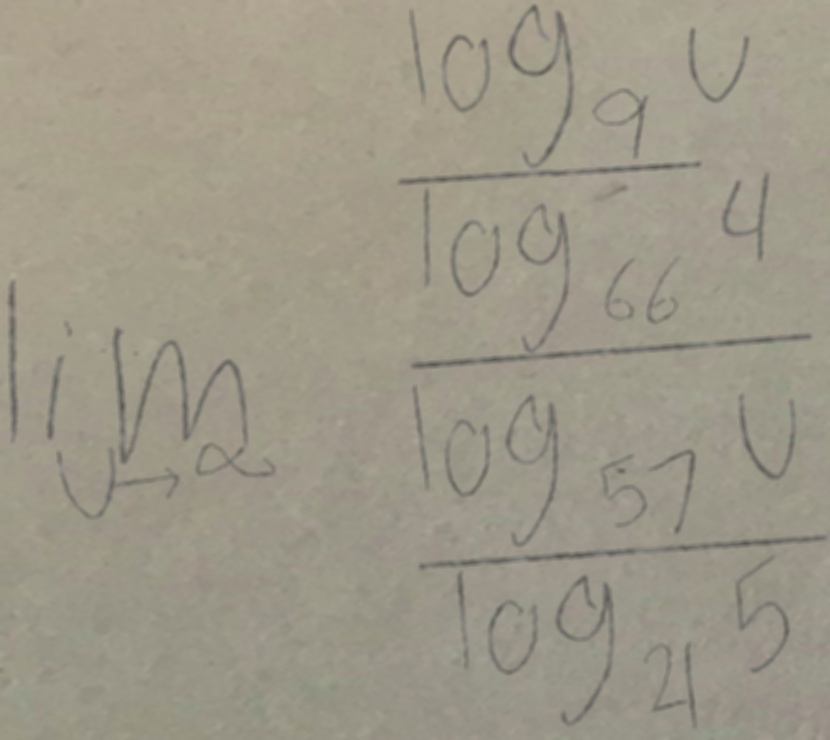 lim
υ→∞
log₉ υ
log₆₆ 4
log₅₇ υ
log₂₁ 5